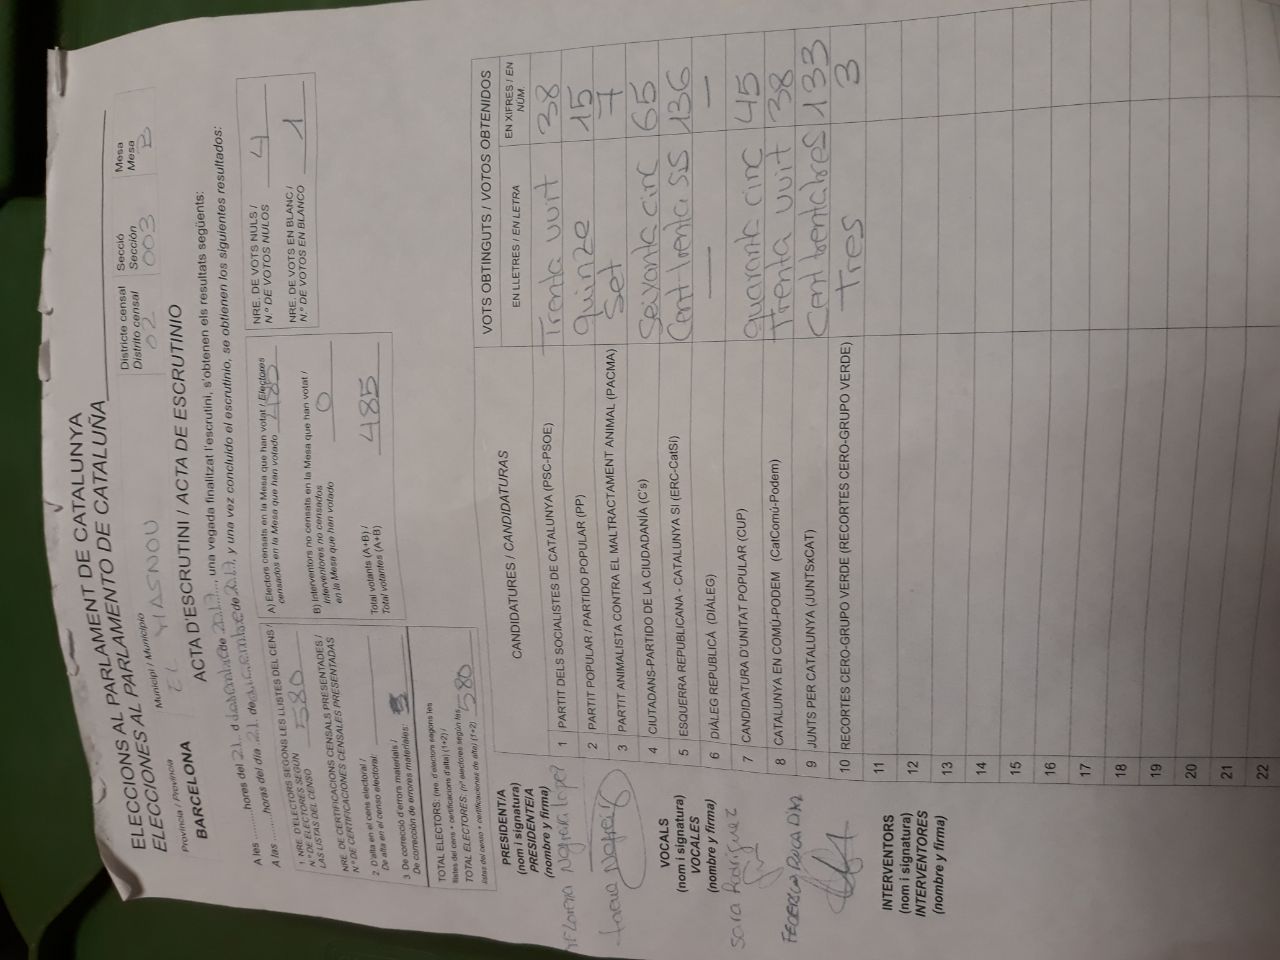 ELECCIONS AL PARLAMENT DE CATALUNYA
ELECCIONES AL PARLAMENTO DE CATALUÑA
Província / Provincia
BARCELONA
Municipi / Municipio
EL MASNOU
Districte censal
Distrito censal
02
Secció
Sección
003
Mesa
Mesa
B
ACTA D'ESCRUTINI / ACTA DE ESCRUTINIO
A les ............hores del 21 d desembre de 2017......., una vegada finalitzat l'escrutini, s'obtenen els resultats següents:
A las ............horas del día 21 de diciembre de 2017, y una vez concluido el escrutinio, se obtienen los siguientes resultados:
1. NRE. D'ELECTORS SEGONS LES LLISTES DEL CENS /
N.º DE ELECTORES SEGÚN
LAS LISTAS DEL CENSO 580
NRE. DE CERTIFICACIONS CENSALS PRESENTADES /
N.º DE CERTIFICACIONES CENSALES PRESENTADAS
2. D'alta en el cens electoral /
De alta en el censo electoral:
3. De correcció d'errors materials /
De corrección de errores materiales:
TOTAL ELECTORS: (nre. d'electors segons les
llistes del cens + certificacions d'alta) (1+2) /
TOTAL ELECTORES: (nº electores según las
listas del censo + certificaciones de alta) (1+2) 580
A) Electors censats en la Mesa que han votat / Electores
censados en la Mesa que han votado 485
B) Interventors no censats en la Mesa que han votat /
Interventores no censados
en la Mesa que han votado 0
Total votants (A+B) /
Total votantes (A+B) 485
NRE. DE VOTS NULS /
N.º DE VOTOS NULOS 4
NRE. DE VOTS EN BLANC /
N.º DE VOTOS EN BLANCO 1
PRESIDENT/A
(nom i signatura)
PRESIDENTE/A
(nombre y firma)
VOCALS
(nom i signatura)
VOCALES
(nombre y firma)
Sara Rodríguez
INTERVENTORS
(nom i signatura)
INTERVENTORES
(nombre y firma)
CANDIDATURES / CANDIDATURAS
VOTS OBTINGUTS / VOTOS OBTENIDOS
EN LLETRES / EN LETRA
EN XIFRES / EN
NÚM.
1 PARTIT DELS SOCIALISTES DE CATALUNYA (PSC-PSOE) Trenta vuit 38
2 PARTIT POPULAR / PARTIDO POPULAR (PP) quinze 15
3 PARTIT ANIMALISTA CONTRA EL MALTRACTAMENT ANIMAL (PACMA) Set 7
4 CIUTADANS-PARTIDO DE LA CIUDADANÍA (C's) Seixanta cinc 65
5 ESQUERRA REPUBLICANA - CATALUNYA SÍ (ERC-CatSí) Cent trenta sis 136
6 DIÀLEG REPUBLICÀ (DIÀLEG) — —
7 CANDIDATURA D'UNITAT POPULAR (CUP) quaranta cinc 45
8 CATALUNYA EN COMÚ-PODEM (CatComú-Podem) trenta vuit 38
9 JUNTS PER CATALUNYA (JUNTSxCAT) Cent trentatres 133
10 RECORTES CERO-GRUPO VERDE (RECORTES CERO-GRUPO VERDE) Tres 3
11
12
13
14
15
16
17
18
19
20
21
22